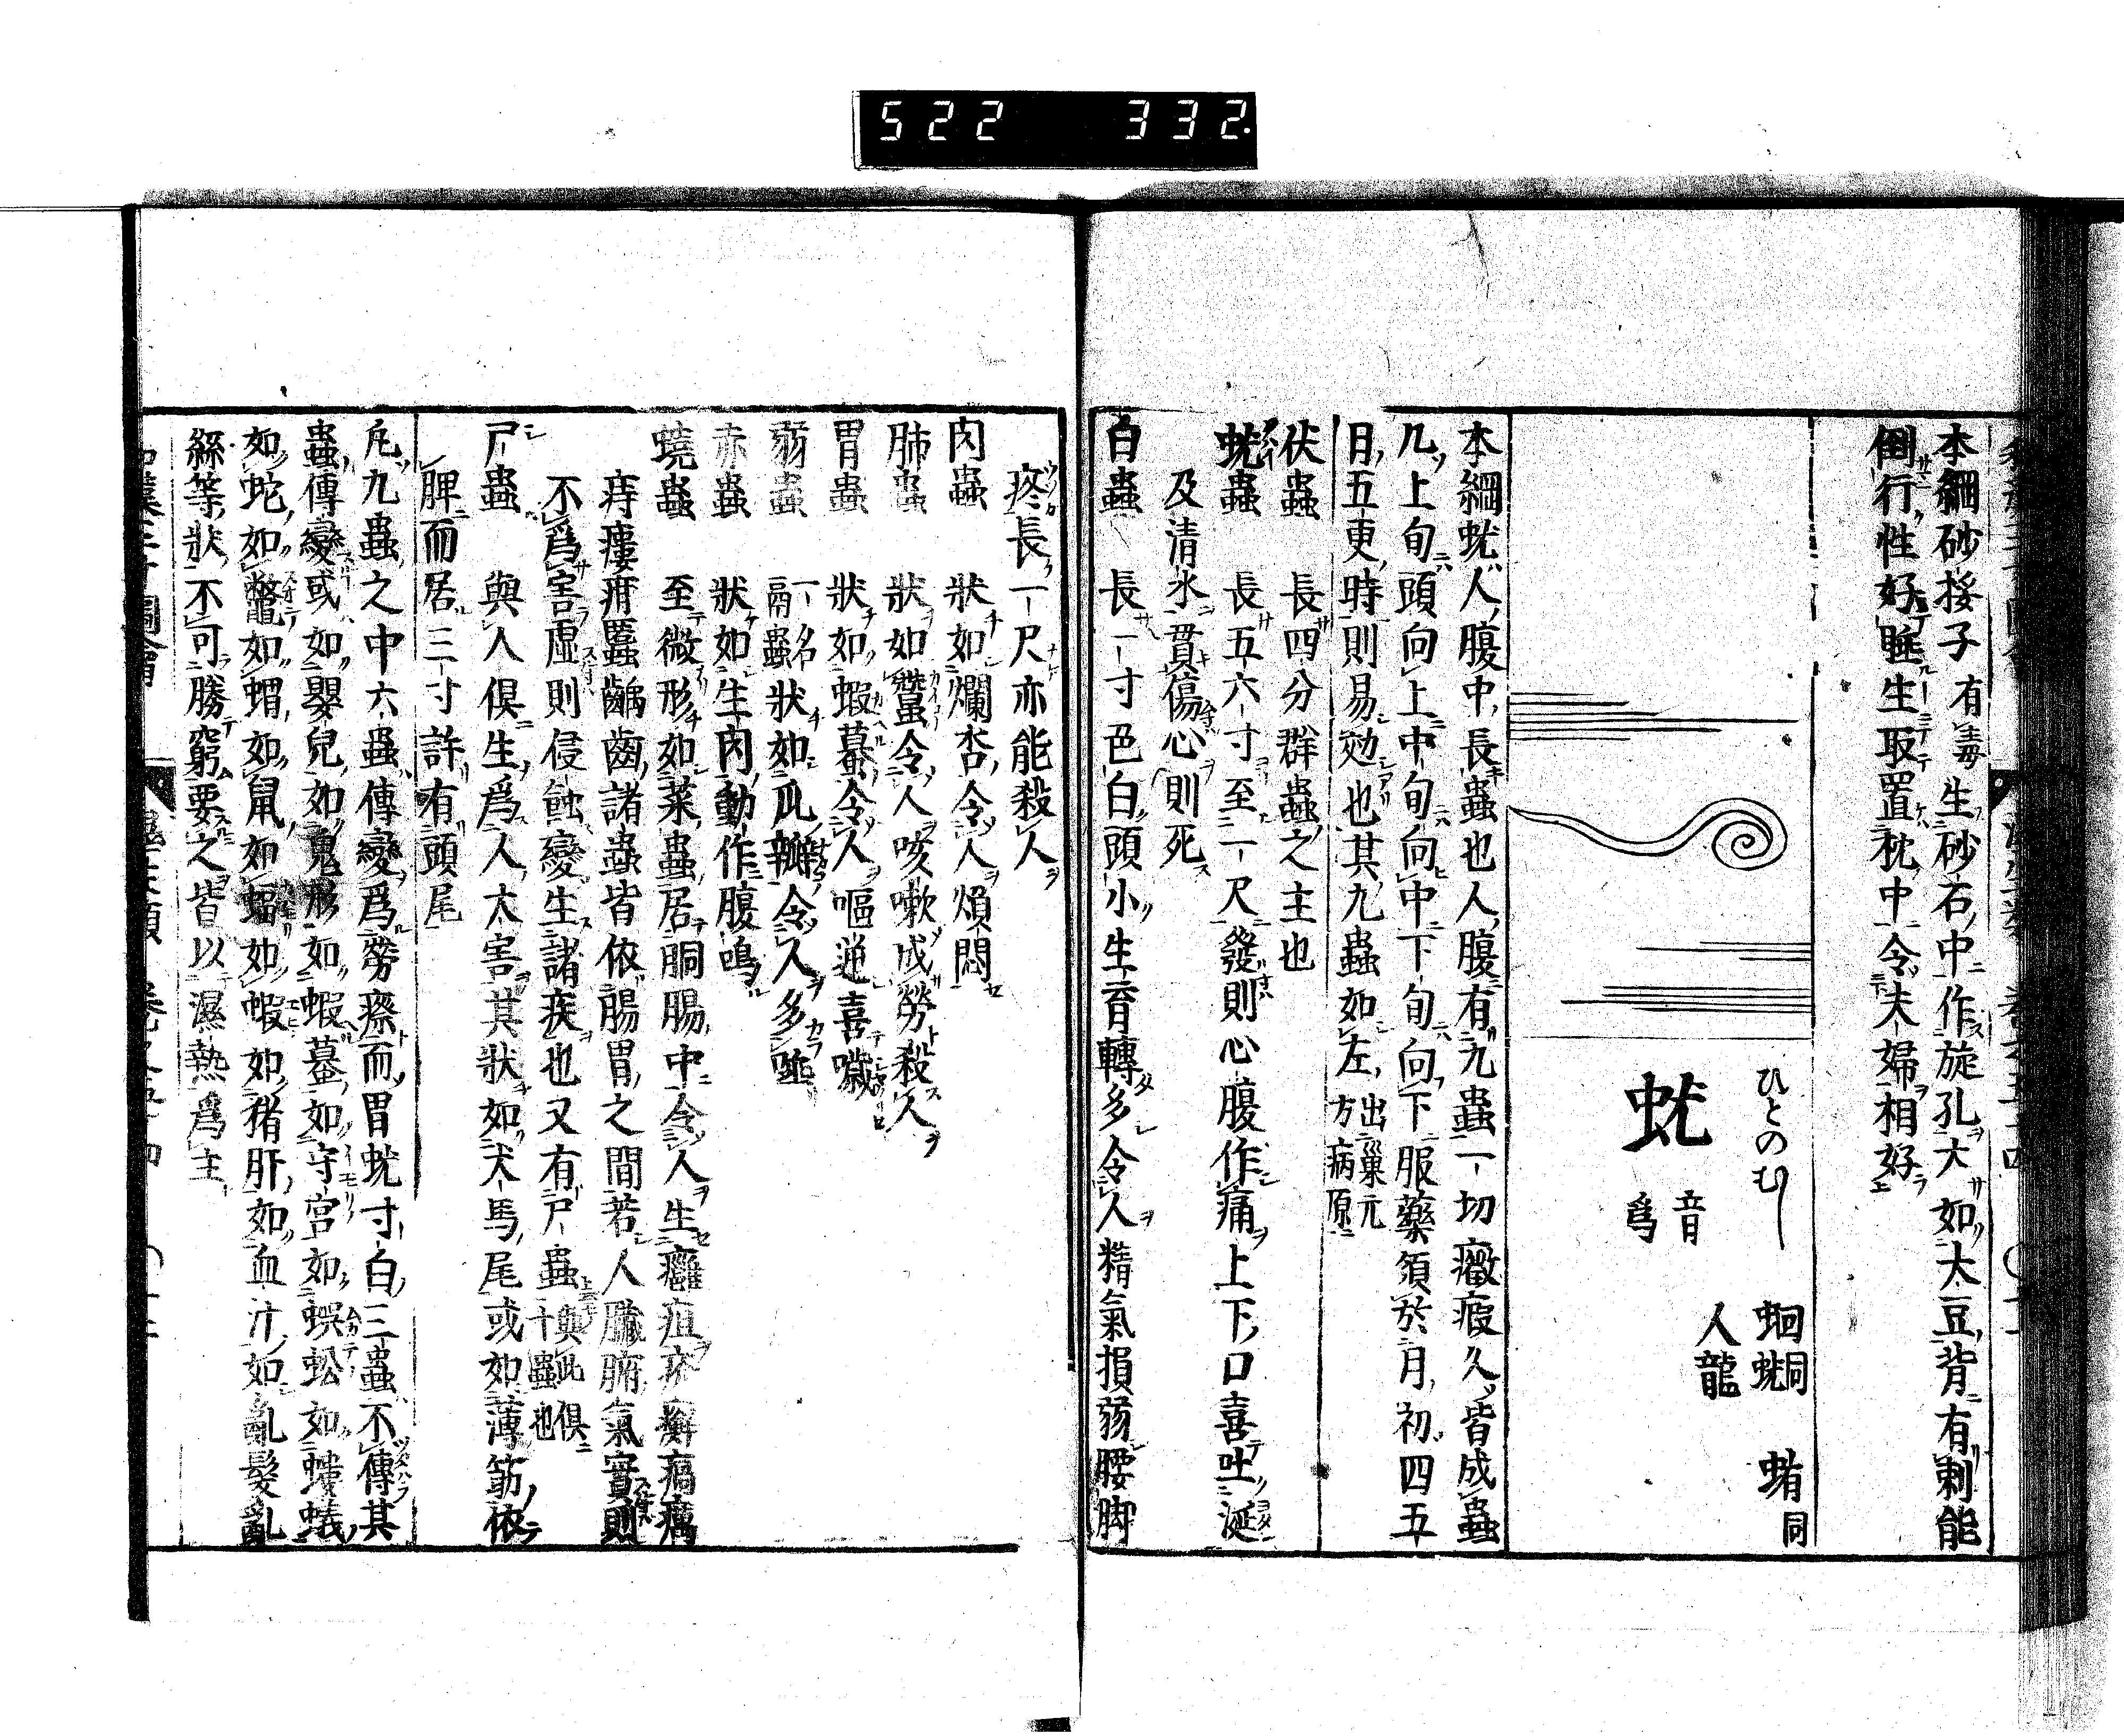 522 332.
本綱砂挼子有毒生砂石中作旋孔大如大豆背有刺能
倒行性好睡生取置枕中令夫婦相好
ひとのむし
蚘
音
爲
蛔 蜩同 蛕同
人龍
本綱蚘人腹中長蟲也人腹有九蟲一切癥瘕久皆成蟲
凡上旬頭向上中旬向中下旬向下服藥須於月初四五
日五更時則易効也其九蟲如左出巢元方病原
伏蟲 長四分群蟲之主也
蚘蟲 長五六寸至一尺發則心腹作痛上下口喜吐涎
及清水貫傷心則死
白蟲 長一寸色白頭小生育轉多令人精氣損弱腰脚
疼長一尺亦能殺人
肉蟲 狀如爛杏令人煩悶
肺蟲 狀如蠶令人咳嗽成勞殺人
胃蟲 狀如蝦蟇令人嘔逆喜噦
弱蟲 一名鬲蟲狀如瓜瓣令人多唾
赤蟲 狀如生肉動作腹鳴
蟯蟲 至微形如菜蟲居胴腸中令人生癰疽疥癬瘑癘
痔瘻疳䘌齲齒諸蟲皆依腸胃之間若人臟腑氣實則
不爲害虛則侵蝕變生諸疾也又有尸蟲與此俱十蟲也
尸蟲 與人俱生爲人大害其狀如犬馬尾或如薄筋依
脾而居三寸許有頭尾
凡九蟲之中六蟲傳變爲勞瘵而胃蚘寸白三蟲不傳其
蟲傳變或如嬰兒如鬼形如蝦蟇如守宮如蜈蚣如螻蟻
如蛇如鼈如蝟如鼠如蝠如蝦如猪肝如血汁如亂髮亂
絲等狀不可勝窮要之皆以濕熱爲主